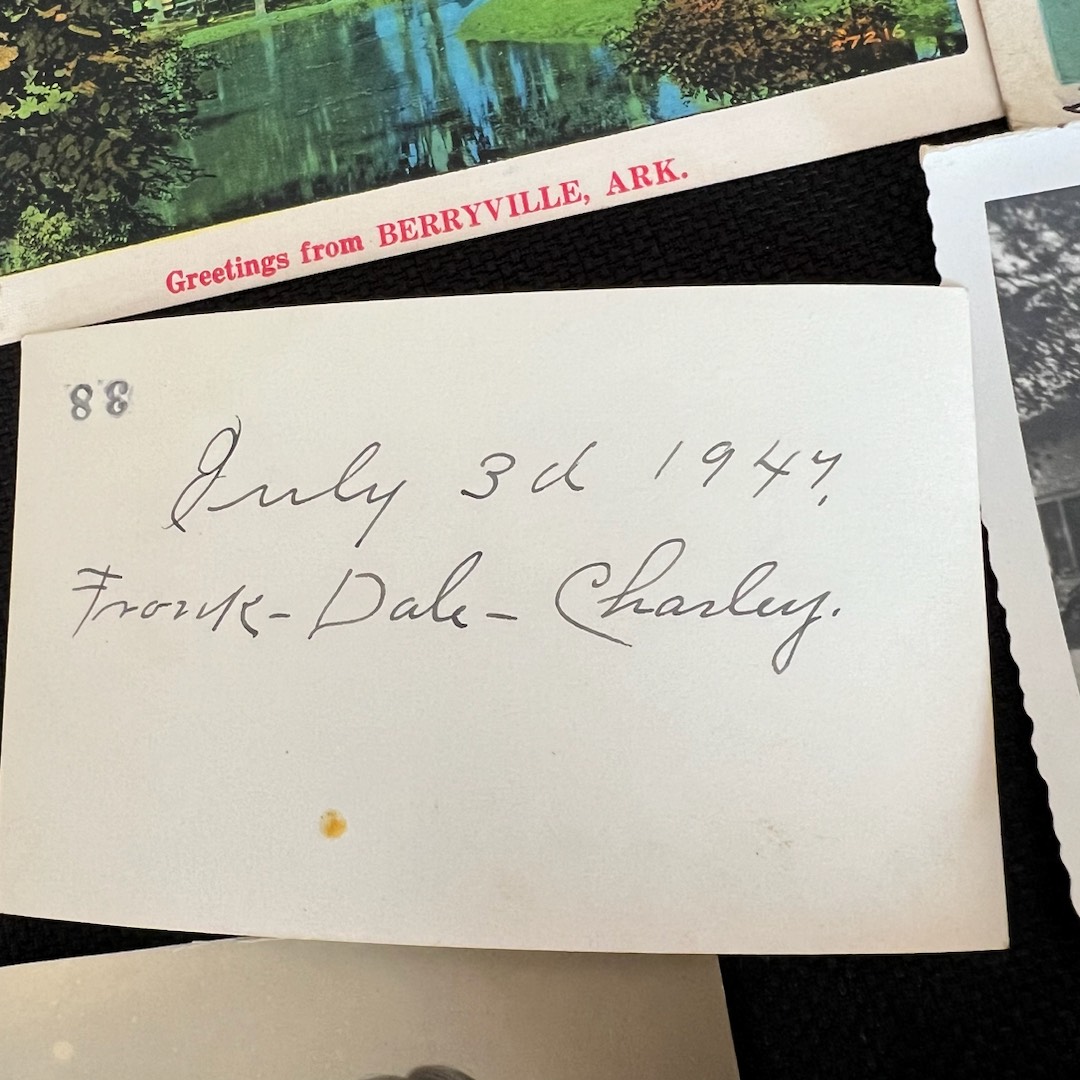 27216
Greetings from BERRYVILLE, ARK.
38
July 3d 1947,
Frank - Dale - Charley.